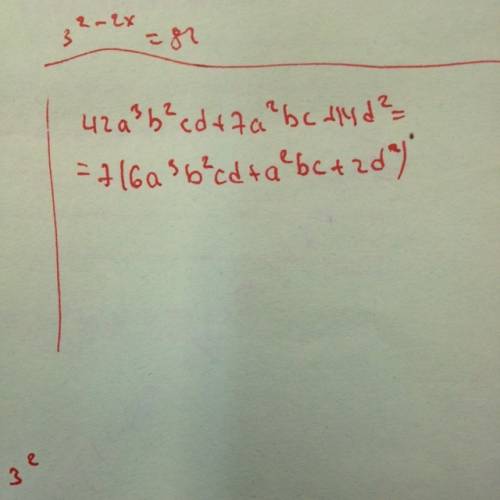 3^(2-2x) = 81
42a³b²cd+7a²bc+14d²=
=7(6a³b²cd+a²bc+2d²)
3²